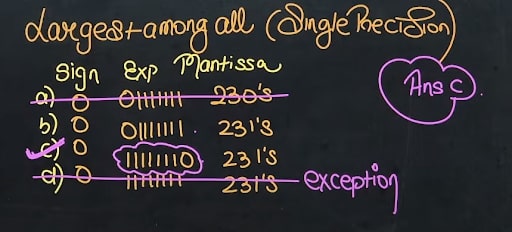 Largest among all (Single Precision)
Sign Exp Mantissa
a) 0 01111111 230's
b) 0 01111111 231's
c) 0 11111110 231's
d) 0 11111111 231's exception
Ans C.